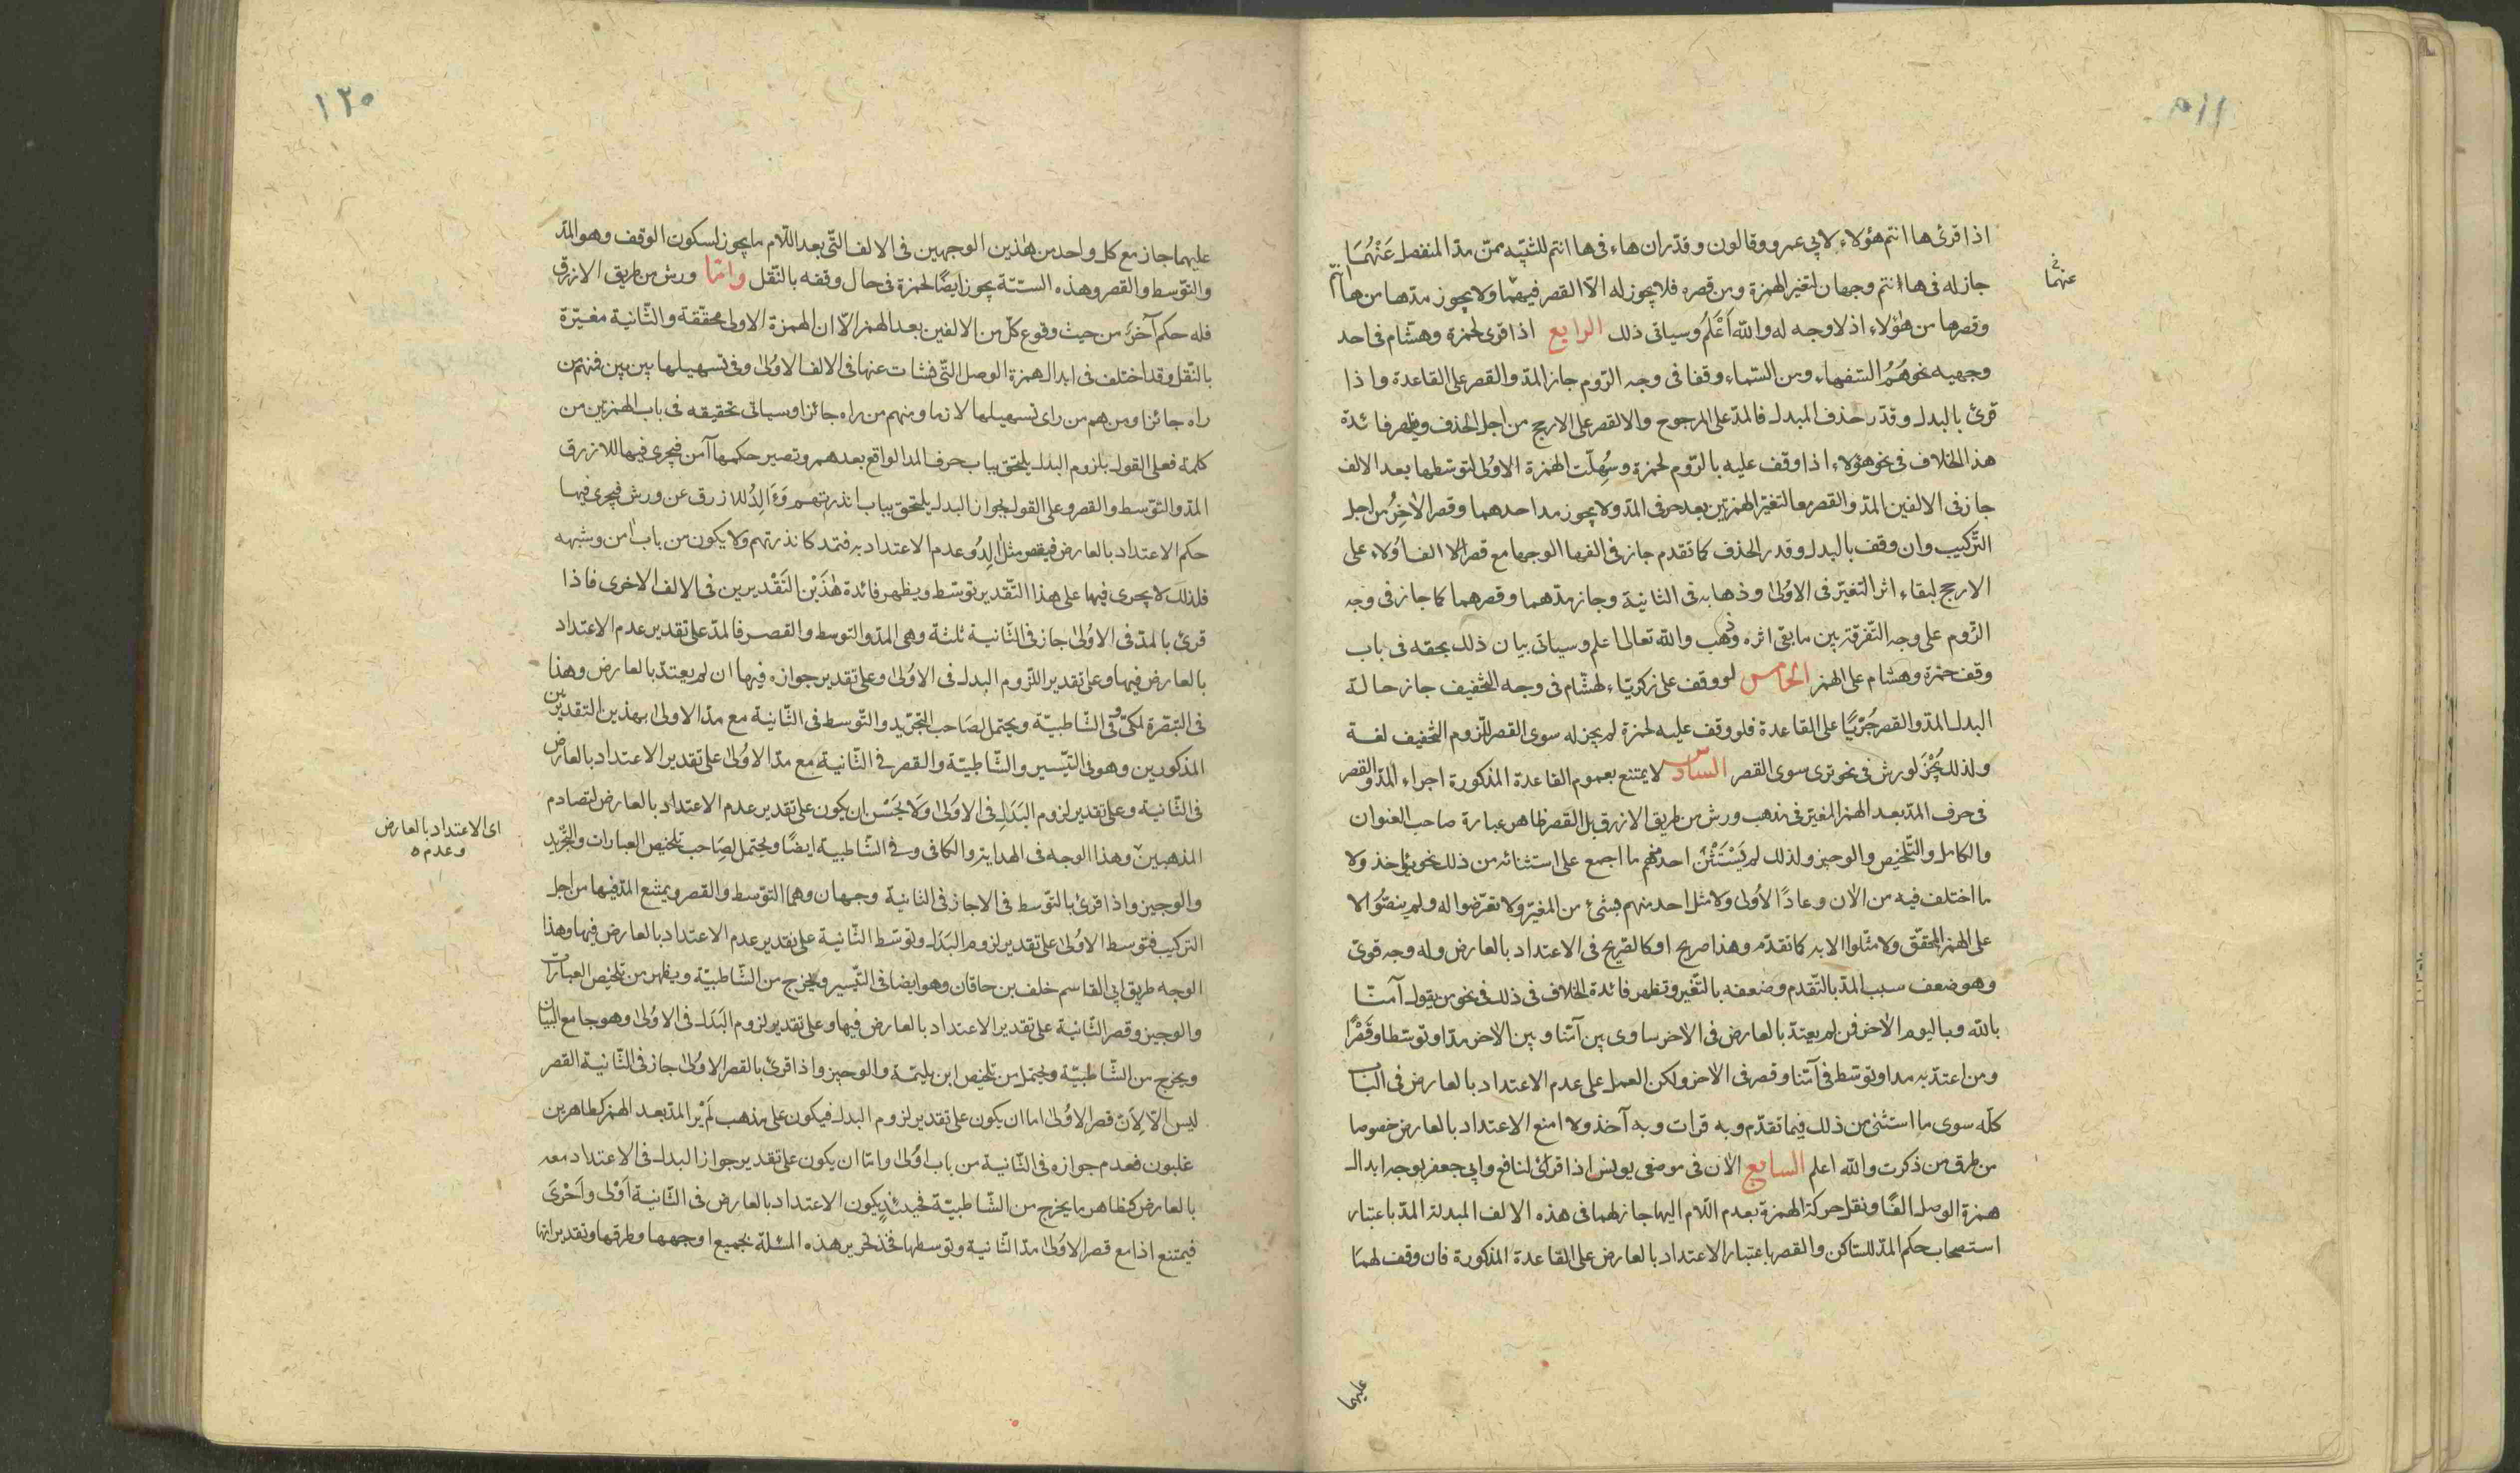 اذا قرئ ها انتم هؤلاء لابي عمرو وقالون وقدّر ان هاء فى ها انتم للتنبيه فمن مدّ المنفصل عَنْهُمَا
عنهما
جاز له فى ها انتم وجهان لتغير الهمزة ومن قصره فلا يجوز له الّا القصر فيهما ولا يجوز مدّها من ها انتم
وقصرها من هؤلاء اذ لا وجه له والله اَعْلَمُ وسياتى ذلك الرابع اذا قرى لحمزة وهشام فى احد
وجهيه نحو هُمُ السّفهاء ومن السّماء وقفا فى وجه الرّوم جاز المدّ والقصر على القاعدة واذا
قرئ بالبدل وقدّر حذف المبدل فالمدّ على المرجوح والقصر على الارجح من اجل الحذف وتظهر فائدة
هذا الخلاف فى نحو هؤلاء اذا وقف عليه بالرّوم لحمزة وسُهِلّت الهمزة الاوُلى لتوسّطها بعد الالف
جاز فى الالفين المدّ والقصر معا لتغير الهمزتين بعد حرفى المدّ ولا يجوز مد احدهما وقصر الاٰخِرُ من اجل
التّركيب وان وقف بالبدل وقدر الحذف كما تقدم جاز فى الف ها الوجها مع قصر الف اُولاء على
الارجح لبقاء اثر التغيّر فى الاوُلىٰ وذهابه فى الثانية وجاز مدّهما وقصرهما كما جاز فى وجه
الرّوم على وجه التّفرقة بين ما بقى اثره وذهب والله تعالىٰ اعلم وسياتى بيان ذلك بحقه فى باب
وقف حمزة وهشام على الهمز الخامس لو وقف على زكريّاء لهشام فى وجه التخفيف جاز حالة
البدل المدّ والقصر جَرْيًا على القاعدة فلو وقف عليه لحمزة لم يجز له سوى القصر للزوم التخفيف لغة
ولذلك لم يُجْزَ لورش فى نحو ترى سوى القصر السادس لا يمتنع بعموم القاعدة المذكورة اجراء المدّ والقصر
فى حرف المدّ بعد الهمز المغيّر فى مذهب ورش من طريق الازرق بل القصر ظاهر عبارة صاحب العنوان
والكامل والتّلخيص والوجيز ولذلك لم يَسْتَثْنِ احد منهم ما اجمع على استثنائه من ذلك نحو يؤاخذ ولا
ما اختلف فيه من الاٰن وعادًا الاُولىٰ ولا مثل احد منهم بشئ من المغيّر ولا تعرّضوا له ولم ينصّوا الا
على الهمز المحقّق ولا مثّلوا الا به كما تقدّم وهذا صريح او كالصّريح فى الاعتداد بالعارض وله وجه قوىّ
وهو ضعف سبب المدّ بالتّقدم وضعفه بالتّغير وتظهر فائدة الخلاف فى ذلك فى نحو من يقول آمنّا
بالله وباليوم الاٰخر فمن لم يعتدّ بالعارض فى الاٰخر ساوى بين آمنّا وبين الاٰخر مدّا وتوسّطا وقَصْرًا
ومن اعتدّ به مدا وتوسّط فى آمنّا وقصر فى الاٰخر ولكن العمل على عدم الاعتداد بالعارض فى الباب
كلّه سوى ما استثنى من ذلك فيما تقدّم وبه قرات وبه آخذ ولا امنع الاعتداد بالعارض خصوصا
من طرق من ذكرت والله اعلم السابع الاٰن فى موضعى يونس اذا قرئ لنافع وابي جعفر بوجه ابدال
همزة الوصل الفًا ونقل حركة الهمزة بعد اللّام اليها جاز لهما فى هذه الالف المبدلة المدّ باعتبار
استصحاب حكم المدّ للسّاكن والقصر باعتبار الاعتداد بالعارض على القاعدة المذكورة فان وقف لهما
عليهما
١٢٥
عليهما جاز مع كل واحد من هٰذين الوجهين فى الالف التّى بعد اللّام ما يجوز لسكون الوقف وهو المدّ
والتّوسّط والقصر وهذه الستّة يجوز ايضًا لحمزة فى حال وقفه بالنّقل وامّا ورش من طريق الازرق
فله حكم آخرَ من حيث وقوع كلّ من الالفين بعد الهمز الّا ان الهمزة الاولى محقّقة والثّانية مغيّرة
بالنّقل وقد اختلف فى ابدال همزة الوصل التّى نشات عنها فى الالف الاوُلىٰ وفى تسهيلها بين بين فمنهم من
راه جائزا ومنهم من راى تسهيلها لازما ومنهم من راه جائزا وسياتى تحقيقه فى باب الهمزتين من
كلمة فعلى القول بلزوم البدل يلتحق بباب حرف المدّ الواقع بعد همز وتصير حكمها آمن فيجرى فيها للازرق
المدّ والتّوسّط والقصر وعلى القول بجواز البدل يلتحق بباب انذرتهم وَءَاَلِدُ للازرق عن ورش فيجرى فيها
حكم الاعتداد بالعارض فيقصر مثل اٰلِدُ وعدم الاعتداد به فتمد كانذرتهم ولا يكون من باب اٰمن وشبهه
فلذلك لا يجرى فيها على هذا التّقدير توسّط ويظهر فائدة هٰذَيْنِ التَقْديرين فى الالف الاخرى فاذا
قرئ بالمدّ فى الاوُلىٰ جاز فى الثّانية ثلثة وهى المدّ والتوسط والقصر فالمدّ على تقدير عدم الاعتداد
بالعارض فيها وعلى تقدير اللّزوم البدل فى الاوُلىٰ وعلى تقدير جوازه فيها ان لم يعتدّ بالعارض وهذا
فى التبصرة لمكّى وفى الشّاطبيّة ويحتمل لصَاحب التجريد والتّوسط فى الثّانية مع مدّ الاولىٰ بهذين التقديرين
المذكورين وهو فى التّيسير والشّاطبيّة والقصر فى الثّانية مع مدّ الاوُلىٰ على تقدير الاعتداد بالعارض
فى الثّانية وعلى تقدير لزوم البَدَلِ فى الاوُلىٰ وَلَا يَحْسُن ان يكون على تقدير عدم الاعتداد بالعارض لتصادم
اى الاعتداد بالعارض
وعدمه
المذهبين وهذا الوجه فى الهداية والكافى وفى الشّاطبية ايضًا ويحتمل لصَاحب تلخيص العبارات والتّجريد
والوجيز واذا قرئ بالتّوسّط فى الا جاز فى الثانية وجهان وهما التّوسّط والقصر ويمتنع المدّ فيها من اجل
التركيب فتوسط الاوُلىٰ على تقدير لزوم البَدَل وتوسّط الثّانية على تقدير عدم الاعتداد بالعارض فيها وهذا
الوجه طريق ابي القاسم خلف بن خاقان وهو ايضا فى التّيسير ويخرج من الشّاطبيّة ويظهر من تلخيص العبارات
والوجيز وقصر الثّانية على تقدير الاعتداد بالعارض فيها وعلى تقدير لزوم البَدَل فى الاوُلىٰ وهو جامع البيان
ويخرج من الشّاطبيّة ويحتمل من تلخيص ابن بليمة والوجيز واذا قرئ بالقصر الاوُلىٰ جاز فى الثّانية القصر
ليس الّا لِاَنّ قصر الاوُلىٰ اما ان يكون على تقدير لزوم البدل فيكون على مذهب لَمْ يَر المدّ بعد الهمز كطاهر بن
غلبون فعدم جوازه فى الثّانية من باب اوُلىٰ وامّا ان يكون على تقدير جواز البدل فى الاعتداد معه
بالعارض كظاهر ما يخرج من الشّاطبيّة فحينئذٍ يكون الاعتداد بالعارض فى الثّانية اَوْلى واَحْرىَ
فيمتنع اذا مع قصر الاوُلىٰ مدّ الثّانية وتوسطها فخذ تحرير هذه المسئلة بجميع اوجهها وطرقها وتقديراتها